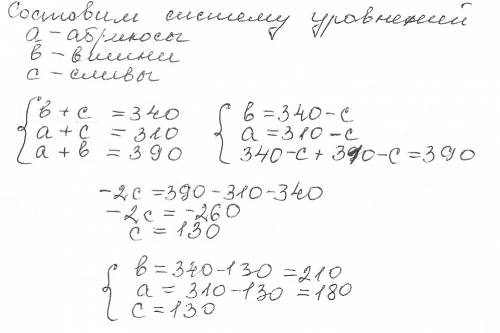 Составим систему уровнений
а - абрикосы
в - вишни
с - сливы
в + с = 340
а + с = 310
а + в = 390
в = 340 - с
а = 310 - с
340 - с + 310 - с = 390
-2с = 390 - 310 - 340
-2с = -260
с = 130
в = 340 - 130 = 210
а = 310 - 130 = 180
с = 130